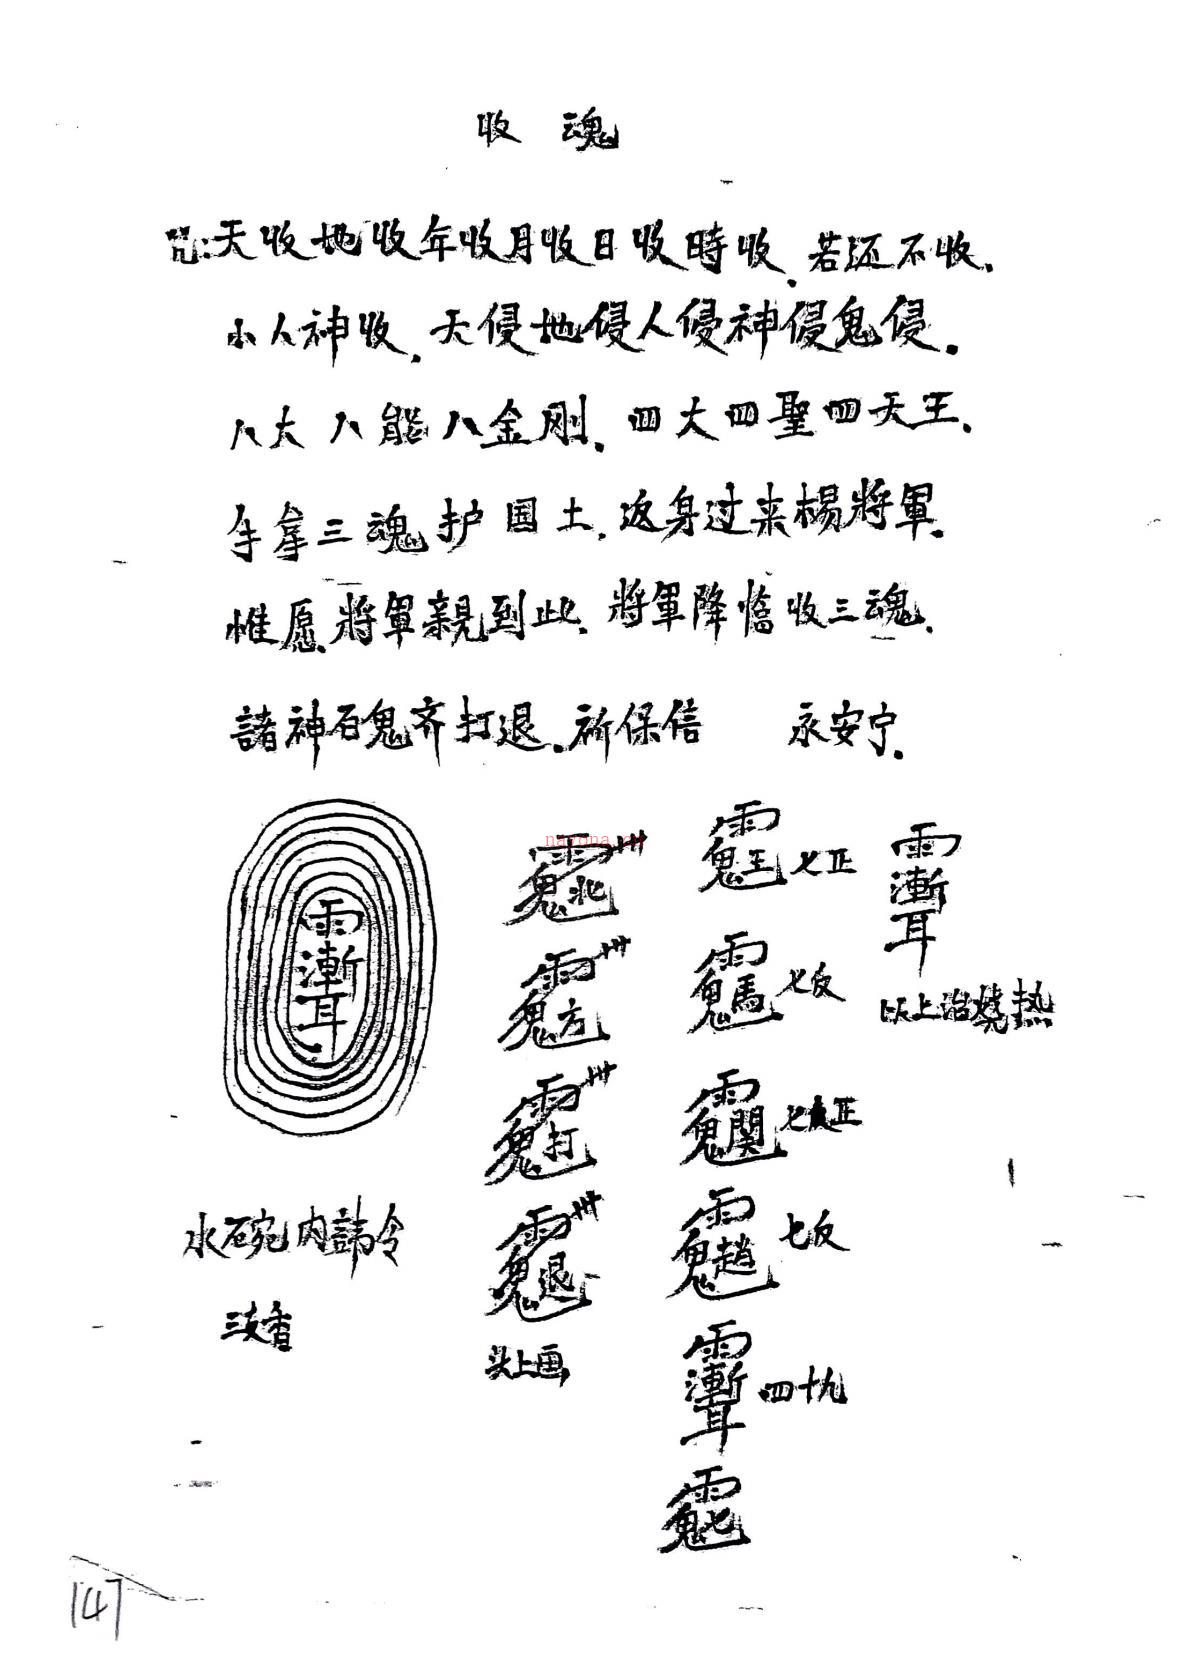 收 魂
咒:天收地收年收月收日收時收、若还不收、
小人神收、天侵地侵人侵神侵鬼侵.
八大八能八金刚、四大四聖四天王、
手拿三魂护国土、返身过来楊將軍.
惟愿將軍親到此、將軍降臨收三魂、
諸神百鬼齐打退、祈保信 永安宁.
雨漸耳
水碗内諱令
三支香
雨鬼北
雨鬼方
雨鬼打
雨鬼退
头上画
雨鬼王 七正
雨鬼馬 七反
雨鬼関 七正
雨鬼趙 七反
雨漸耳 四十九
雨鬼七
雨漸耳
以上治燒热
nayona.cn
147